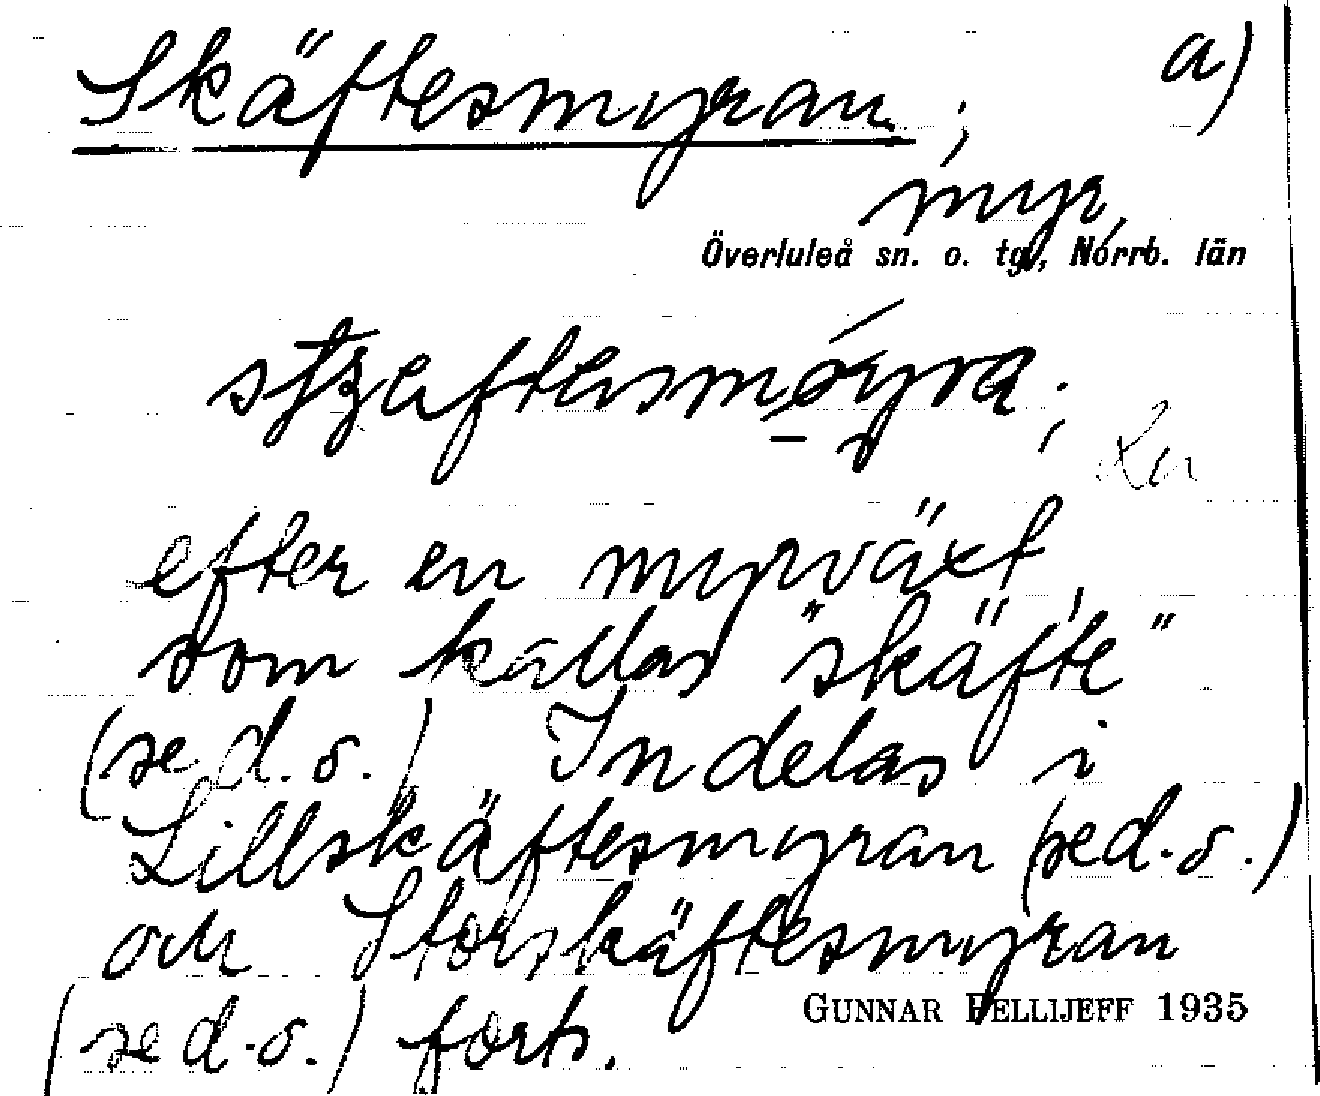 Skäftesmyran; a)
myr,
Överluleå sn. o. tg., Norrb. län
efter en myrväxt,
som kallas "skäfte"
(se d. o.) Indelas i
Lillskäftesmyran (se d. o.)
och Storskäftesmyran
GUNNAR PELLIJEFF 1935
(se d. o.) forts.